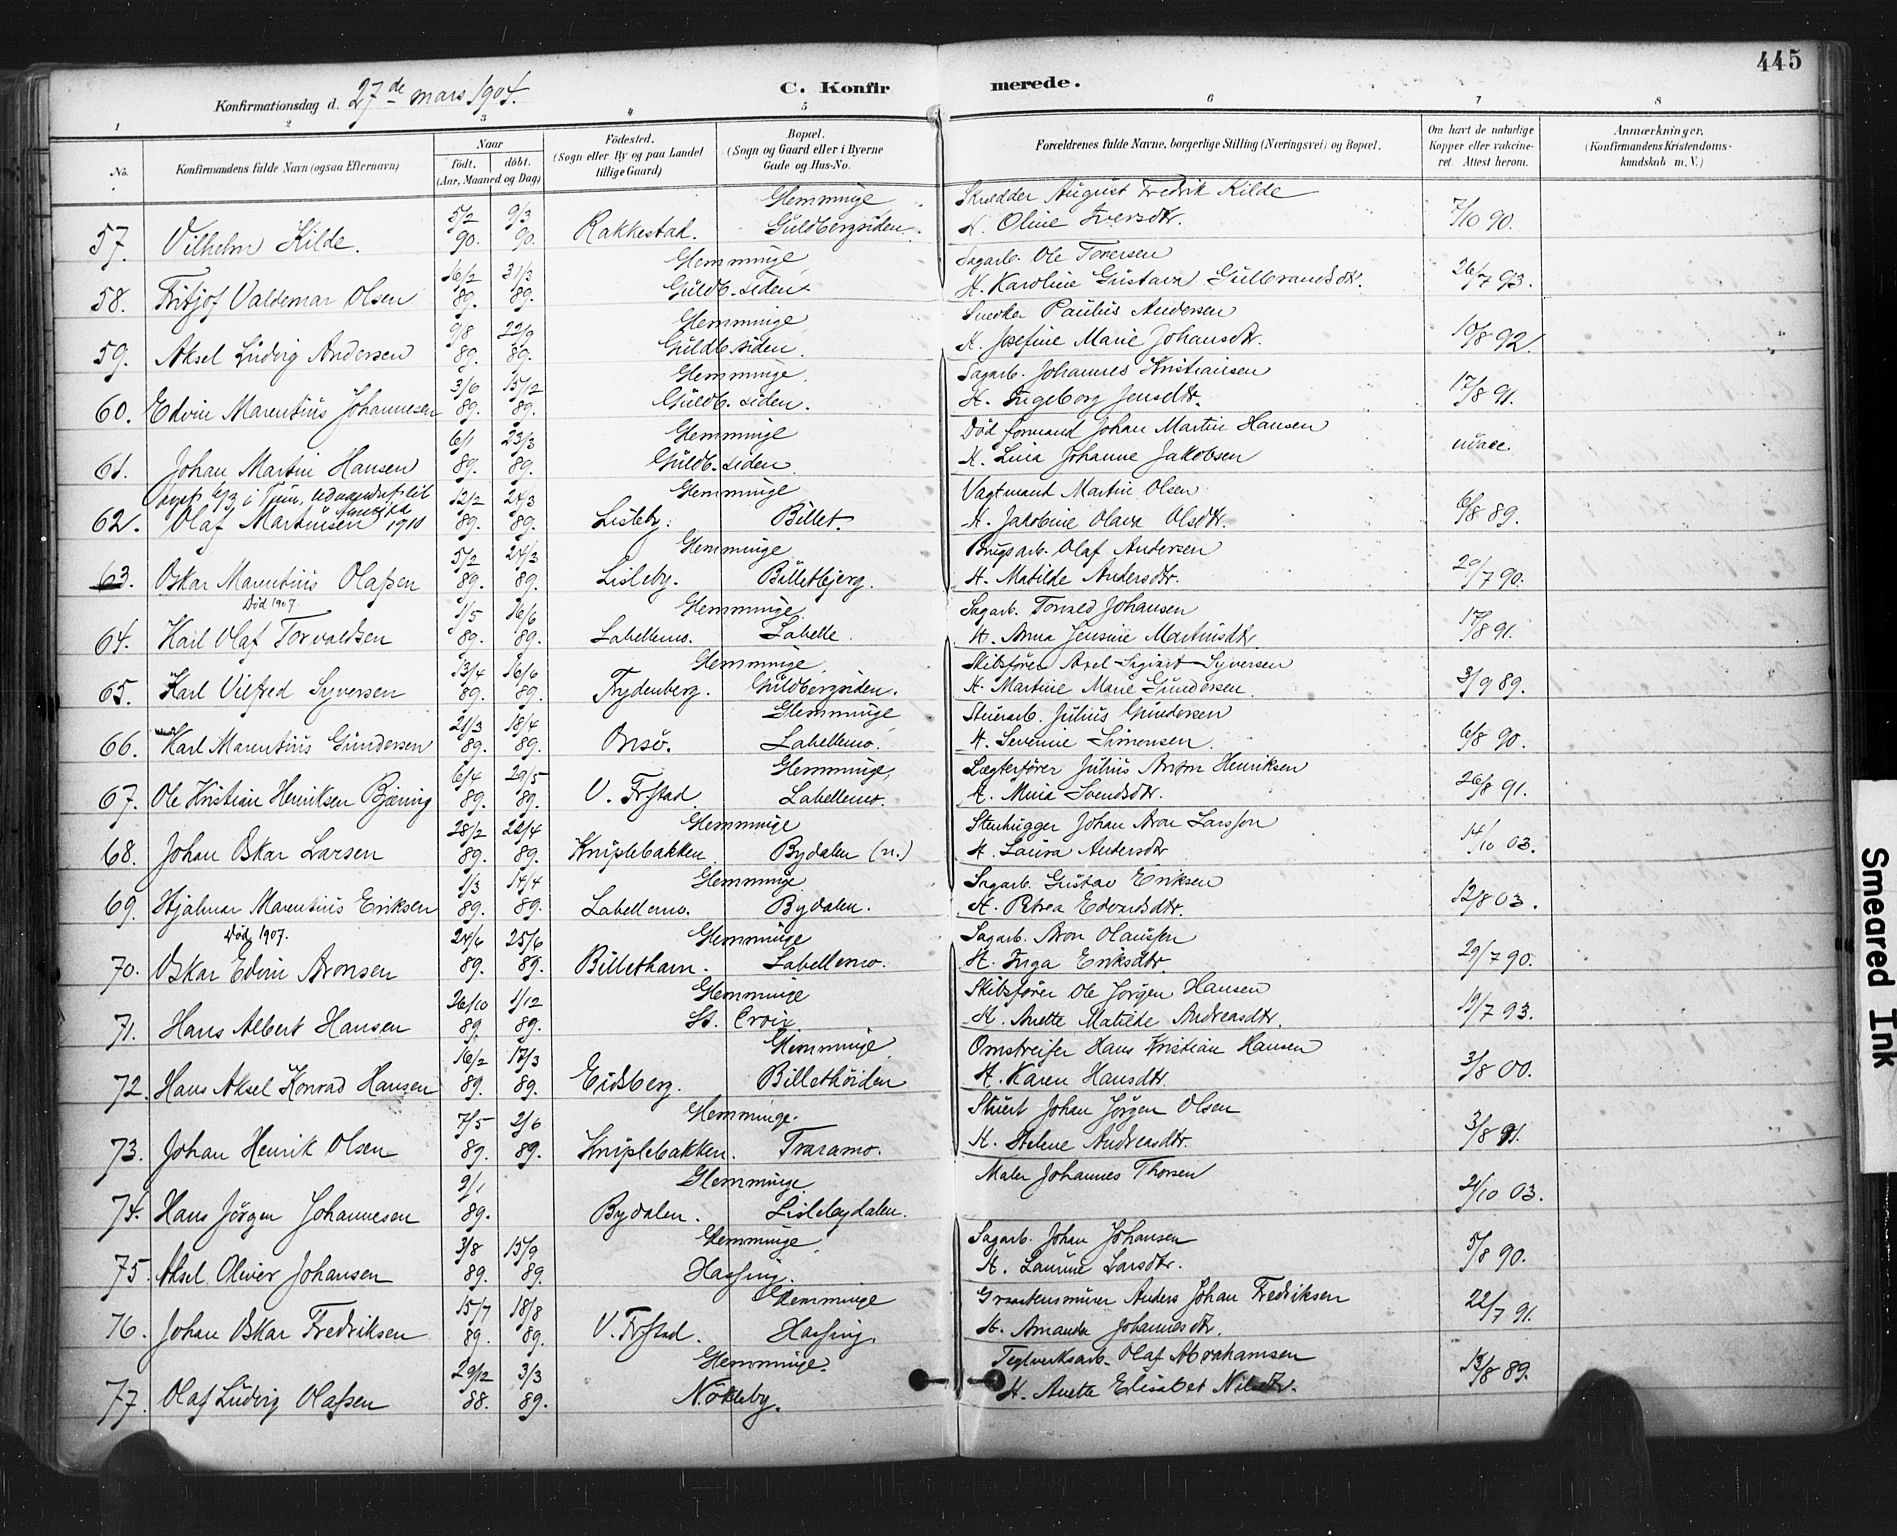 445
Konfirmationsdag d. 27de mars 1904.
C. Konfirmerede.
1 2 3 4 5 6 7 8
No.
Konfirmandens fulde Navn (ogsaa Efternavn)
Naar
födt. döbt.
(Aar, Maaned og Dag)
Födested.
(Sogn eller By og paa Landet
tillige Gaard)
Bopæl.
(Sogn og Gaard eller i Byerne
Gade og Hus-No.
Forældrenes fulde Navne, borgerlige Stilling (Næringsvei) og Bopæl.
Om havt de naturlige
Kopper eller vakcine-
ret. Attest herom.
Anmærkninger.
(Konfirmandens Kristendoms-
kundskab m. V.)
Glemminge Skrædder August Fredrik Kilde
57. Vilhelm Kilde. 5/2 90. 9/3 90. Rakkestad. Guldbergsiden. H. Oline Iversdtr. 7/10 90.
Glemminge Sagarb. Ole Toresen
58. Fritjof Valdemar Olsen 16/2 89. 31/3 89. Guldb.siden. H. Karoline Gustava Gulbrandsdtr. 26/7 93.
Glemminge Snedker Paulus Andersen
59. Aksel Ludvig Andersen 9/8 89. 22/9 89. Guldb.siden. H. Josefine Marie Johansdtr. 10/8 92.
Glemminge. Sagarb. Johannes Kristiansen
60. Edvin Marentius Johannesen 3/6 89. 15/12 89. Guldb.siden. H. Ingeborg Jensdtr. 17/8 91.
Glemminge Död formand Johan Martin Hansen
61. Johan Martin Hansen 6/1 89. 23/3 89. Guldb.siden. H. Lina Johanne Jakobsen
Glemminge Vagtmand Martin Olsen
62. Olaf Martinsen 1910 12/2 89. 24/3 89. Lisleby. Billet. H. Jakobine Olava Olsdtr. 6/8 89.
Glemminge Brugsarb. Olaf Andersen
63. Oskar Marentius Olafsen 5/2 89. 24/3 89. Lisleby. Billetbjerg. H. Matilde Andersdtr. 29/7 90.
Död 1907. Glemminge Sagarb. Torvald Johansen
64. Karl Olaf Torvaldsen 1/5 89. 16/6 89. Labellemo. Labelle. H. Anna Jensine Martinsdtr. 17/8 91.
Glemminge Skibsförer Axel Sigvart Syversen
65. Karl Vilfred Syversen 13/4 89. 16/6 89. Frydenberg. Guldbergsiden. H. Martine Marie Gundersen. 3/9 89.
Glemminge Stuerarb. Julius Gundersen
66. Karl Marentius Gundersen 21/3 89. 18/4 89. Onsö. Labellemo. H. Severine Simensen. 6/8 90.
Glemminge Lægterförer Julius Anton Henriksen
67. Ole Kristian Henriksen Bjerning 6/4 89. 29/5 89. V. Frstad. Labellemo. H. Mina Svendsdtr. 26/8 91.
Glemminge Stenhugger Johan Aron Larsson
68. Johan Oskar Larsen 28/2 89. 22/4 89. Kniplebakken. Bydalen (n.) H. Laura Andersdtr 14/10 03.
Glemminge Sagarb. Gustav Eriksen
69. Hjalmar Marentius Eriksen 1/3 89. 14/4 89. Labellemo. Bydalen. H. Petrea Edvardsdtr. 12/8 03.
Död 1907. Glemminge Sagarb. Aron Olaussen
70. Oskar Edvin Aronsen 24/4 89. 25/6 89. Billethavn. Labellemo. H. Inga Eriksdtr. 29/7 90.
Glemminge Skibsförer Ole Jörgen Hansen
71. Hans Albert Hansen 26/10 89. 1/12 89. St. Croix. H. Anette Matilde Andreasdtr. 19/7 93.
Glemminge Omstreifer Hans Kristian Hansen
72. Hans Aksel Konrad Hansen 16/2 89. 17/3 89. Eidsberg. Billethöiden H. Karen Hansdtr. 3/8 00.
Glemminge. Stuert Johan Jörgen Olsen
73. Johan Henrik Olsen 7/5 89. 2/6 89. Kniplebakken. Traramo. H. Helene Andreasdtr. 3/8 91.
Glemminge Maler Johannes Thorsen
74. Hans Jörgen Johannesen 2/1 89. Bydalen. Lislebydalen. 21/10 03.
Glemminge Sagarb. Johan Johansen
75. Aksel Oliver Johansen 3/8 89. 15/9 89. Hassing. H. Laurine Larsdtr. 5/8 90.
Glemminge Graastensmurer Anders Johan Fredriksen
76. Johan Oskar Fredriksen 15/7 89. 18/8 89. V. Frstad. Hassing. H. Amanda Johannesdtr. 22/7 91.
Glemminge. Teglverksarb. Olaf Abrahamsen
77. Olaf Ludvig Olafsen 29/12 88. 3/3 89. Nökleby. H. Anette Elisabet Nilsdtr. 13/8 89.
Smeared Ink